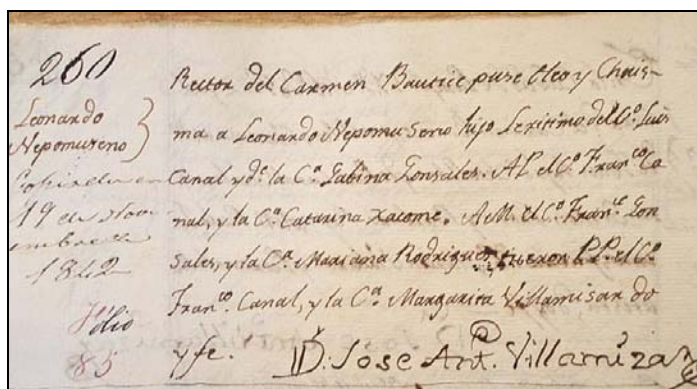 260
Leonardo
Nepomuseno
19 de
1842
fólio
85
Rector del Carmen Bautice puse oleo y Chris-
ma a Leonardo Nepomuseno hijo Lexitimo del Cº. Luis
Canal y de la Cª. Gabina Gonsales. AP. el Cº. Franco Ca
nal, y la Cª. Catarina Xacome. AM. el Cº. Franco Gon
sales, y la Cª. Mariana Rodrigues fueron PP. el Cº.
Franco. Canal, y la Cª. Margarita Villamisar do
y fe. D: Jose Ant. Villamizar